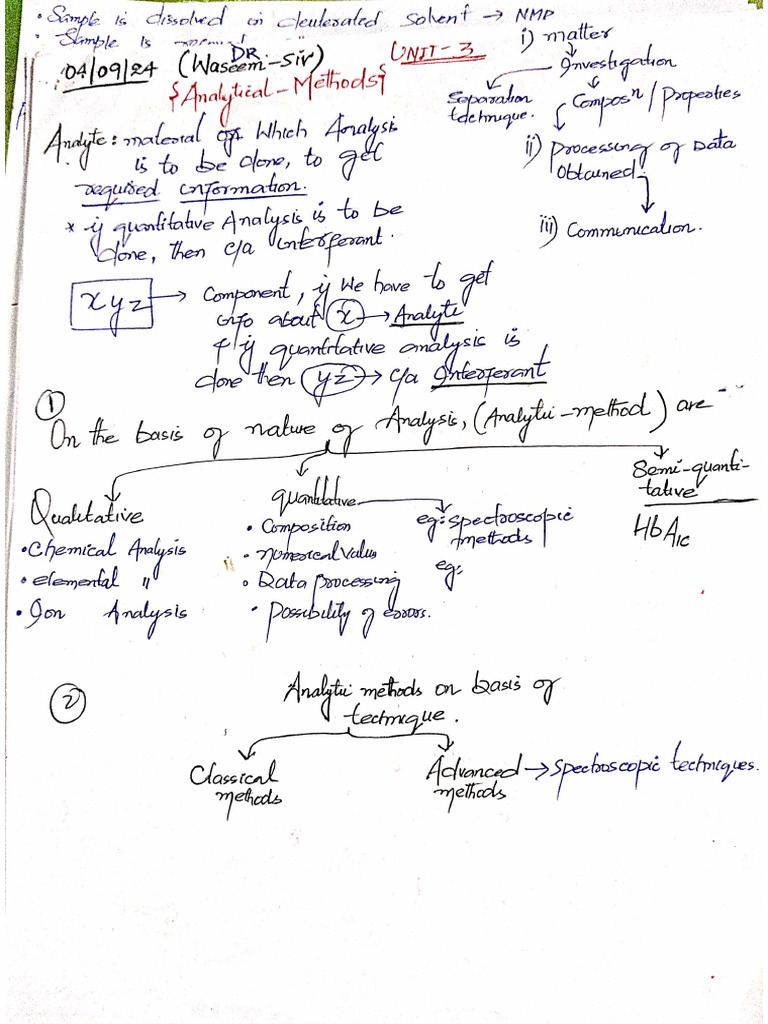 • Sample is dissolved in deuterated solvent → NMP
• Sample is normal
04/09/24 (DR Waseem-Sir) UNIT-3
{Analytical-Methods}
i) matter
Investigation
Separation technique.
Composn / Properties
ii) Processing of Data
Obtained.
iii) Communication.
Analyte: material of which Analysis
is to be done, to get
required information.
* if quantitative Analysis is to be
done, then c/a interferant.
xyz → Component, if we have to get
info about x → Analyte
& if quantitative analysis is
done then yz → c/a Interferant
①
On the basis of nature of Analysis, (Analytic-method) are
Qualitative
• Chemical Analysis
• elemental "
• Ion Analysis
quantitative
• Composition
• numerical value
• Data processing
• Possibility of errors.
eg: spectroscopic
methods
eg:
Semi-quanti-
tative
HbA1c
②
Analytic methods on basis of
technique.
Classical
methods
Advanced → Spectroscopic techniques.
methods